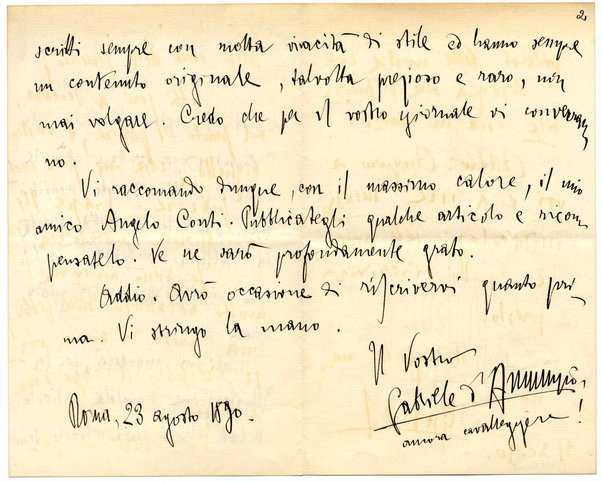 2.
scritti sempre con molta vivacità di stile ed hanno sempre
un contenuto originale, talvolta prezioso e raro, non
mai volgare. Credo che per il vostro giornale vi converran
no.
Vi raccomando dunque, con il massimo calore, il mio
amico Angelo Conti. Pubblicategli qualche articolo e ricom
pensatelo. Ve ne sarò profondamente grato.
Addio. Avrò occasione di riscrivervi quanto pri
ma. Vi stringo la mano.
Il Vostro
Gabriele d'Annunzio,
ancora cavalleggere!
Roma, 23 agosto 1890.